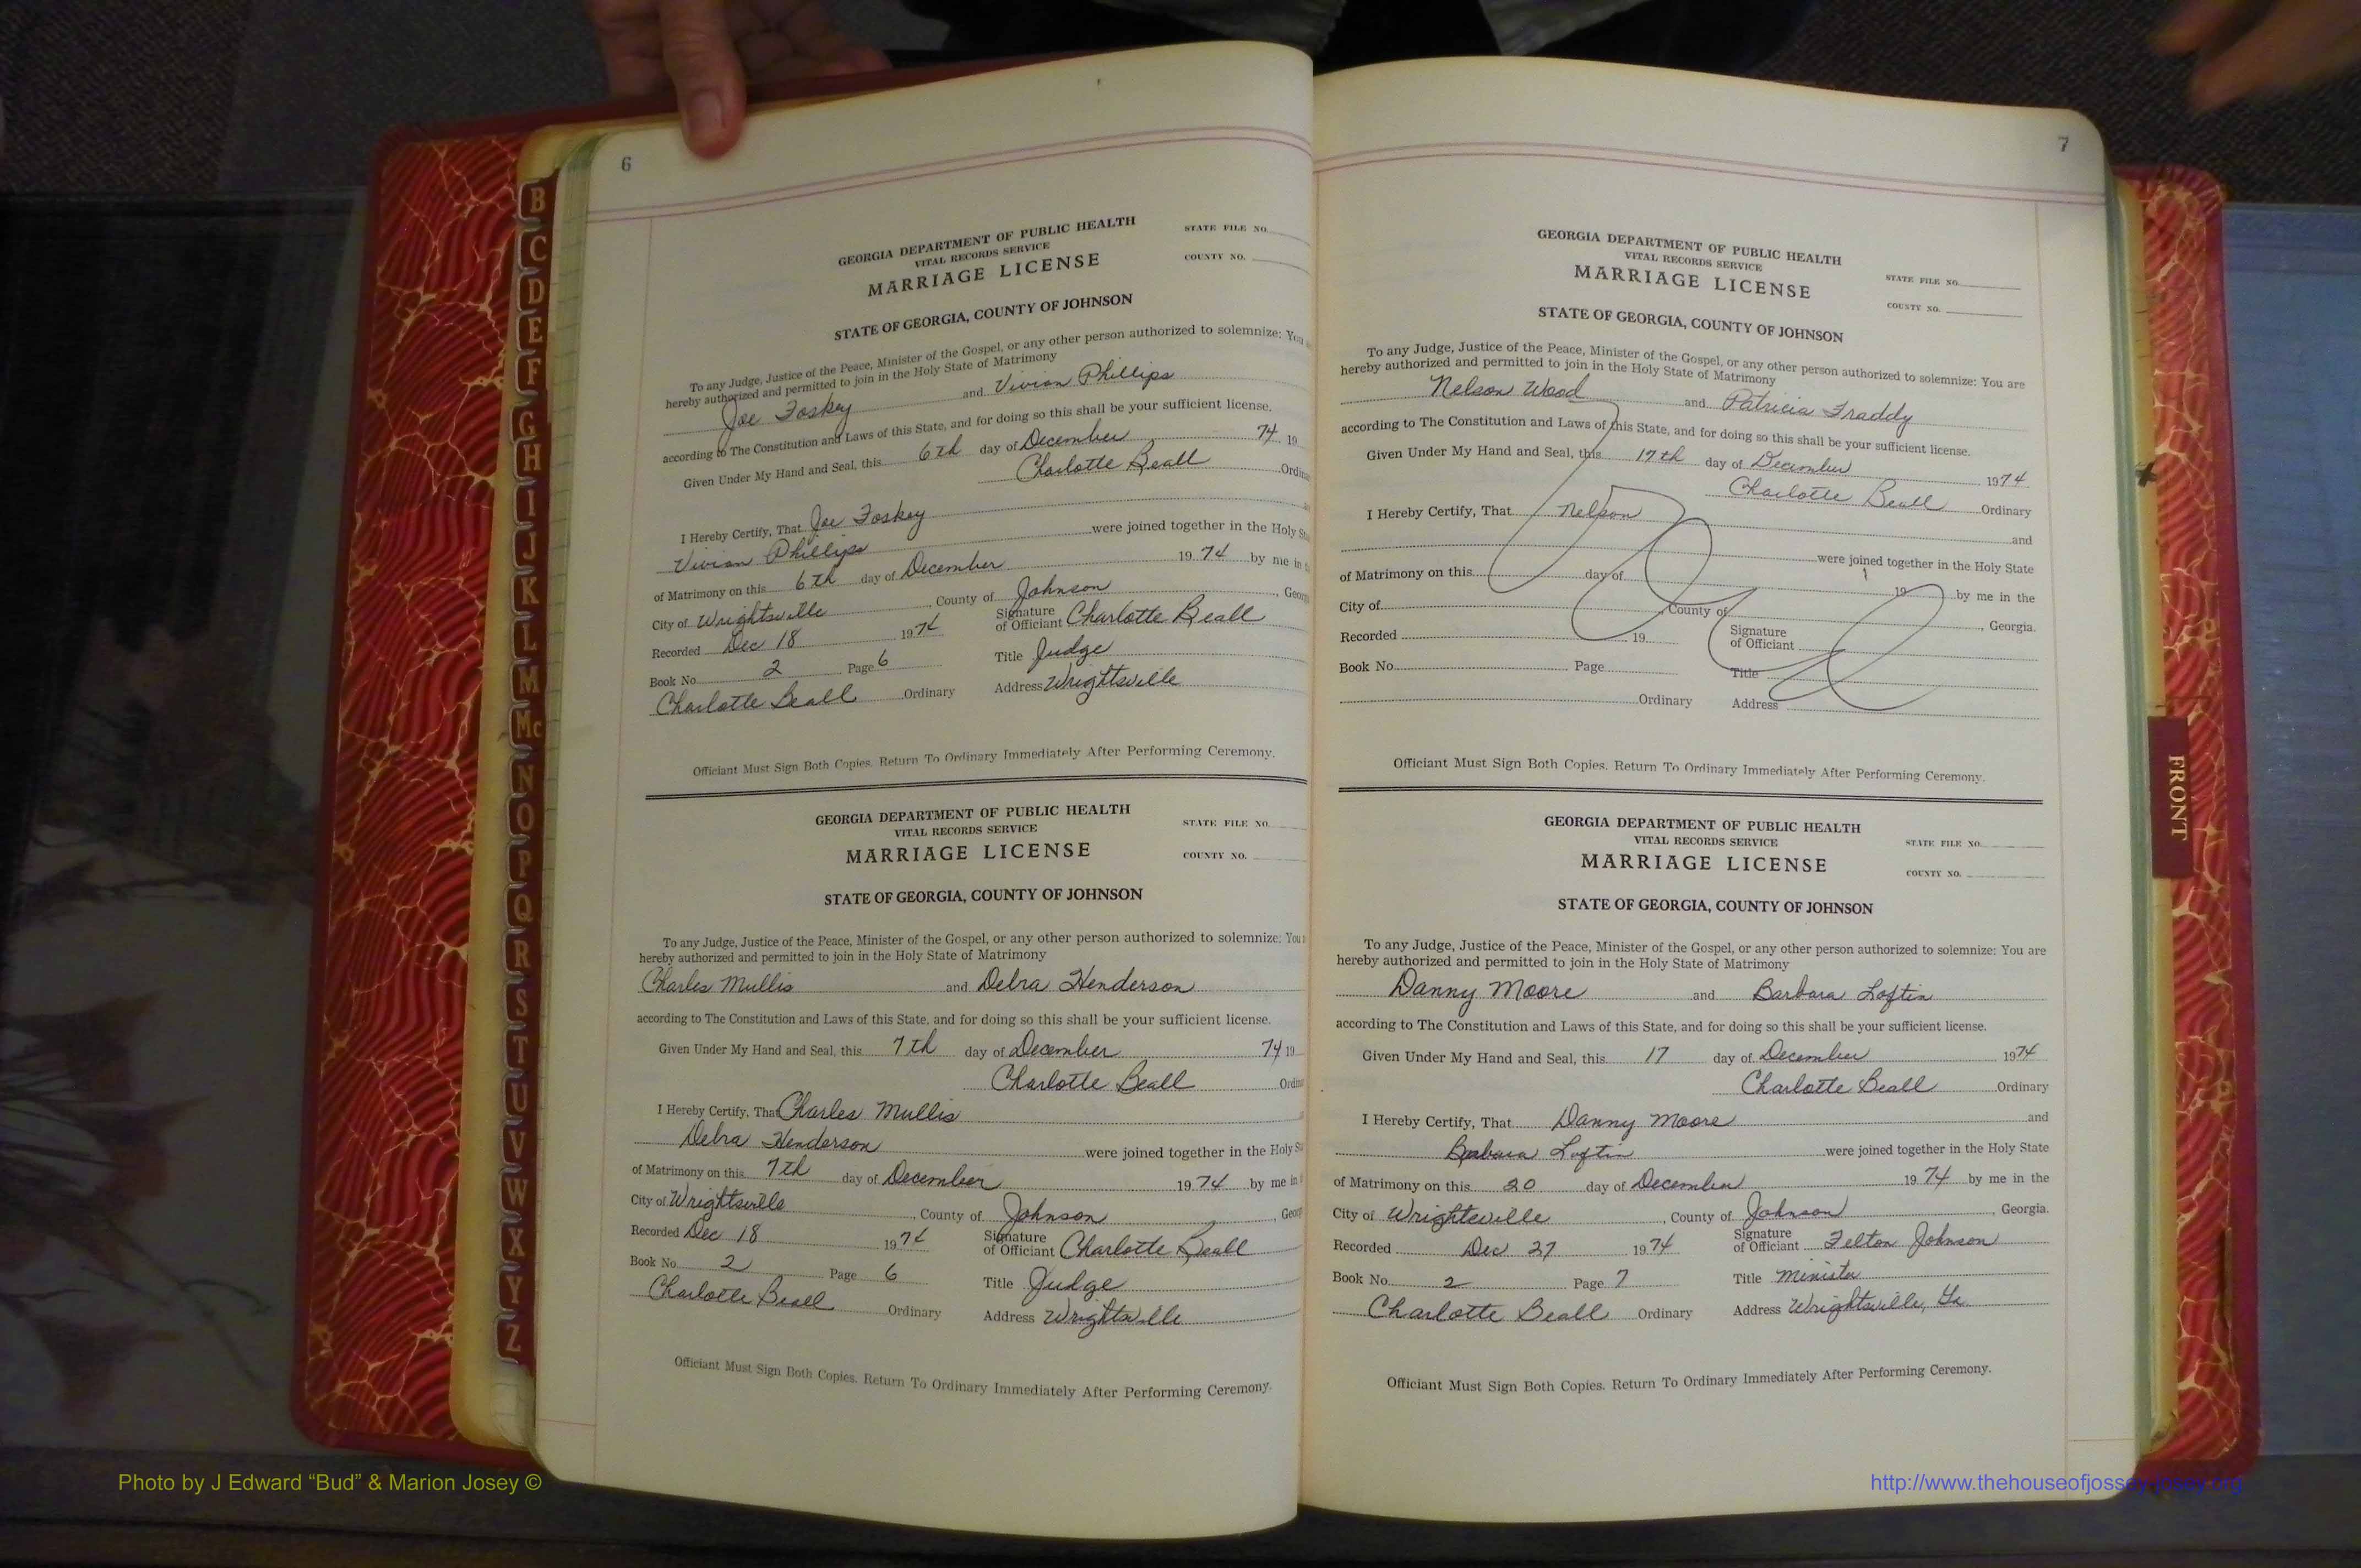 6
GEORGIA DEPARTMENT OF PUBLIC HEALTH
VITAL RECORDS SERVICE
MARRIAGE LICENSE
STATE FILE NO.
COUNTY NO.
STATE OF GEORGIA, COUNTY OF JOHNSON
To any Judge, Justice of the Peace, Minister of the Gospel, or any other person authorized to solemnize: You
hereby authorized and permitted to join in the Holy State of Matrimony
Joe Foskey and Vivian Phillips
according to The Constitution and Laws of this State, and for doing so this shall be your sufficient license.
Given Under My Hand and Seal, this 6th day of December 74 19
Charlotte Beall Ordin
I Hereby Certify, That Joe Foskey
Vivian Phillips were joined together in the Holy St
of Matrimony on this 6th day of December 1974 by me in
City of Wrightsville, County of Johnson, Georg
Recorded Dec 18 1974 Signature of Officiant Charlotte Beall
Book No. 2 Page 6 Title Judge
Charlotte Beall Ordinary Address Wrightsville
Officiant Must Sign Both Copies. Return To Ordinary Immediately After Performing Ceremony.
GEORGIA DEPARTMENT OF PUBLIC HEALTH
VITAL RECORDS SERVICE
MARRIAGE LICENSE
STATE FILE NO.
COUNTY NO.
STATE OF GEORGIA, COUNTY OF JOHNSON
To any Judge, Justice of the Peace, Minister of the Gospel, or any other person authorized to solemnize: You
hereby authorized and permitted to join in the Holy State of Matrimony
Charles Mullis and Debra Henderson
according to The Constitution and Laws of this State, and for doing so this shall be your sufficient license.
Given Under My Hand and Seal, this 7th day of December 74 19
Charlotte Beall Ordin
I Hereby Certify, That Charles Mullis
Debra Henderson were joined together in the Holy St
of Matrimony on this 7th day of December 1974 by me in
City of Wrightsville, County of Johnson, Georg
Recorded Dec 18 1974 Signature of Officiant Charlotte Beall
Book No. 2 Page 6 Title Judge
Charlotte Beall Ordinary Address Wrightsville
Officiant Must Sign Both Copies. Return To Ordinary Immediately After Performing Ceremony.
7
GEORGIA DEPARTMENT OF PUBLIC HEALTH
VITAL RECORDS SERVICE
MARRIAGE LICENSE
STATE FILE NO.
COUNTY NO.
STATE OF GEORGIA, COUNTY OF JOHNSON
To any Judge, Justice of the Peace, Minister of the Gospel, or any other person authorized to solemnize: You are
hereby authorized and permitted to join in the Holy State of Matrimony
Nelson Wood and Patricia Fraddy
according to The Constitution and Laws of this State, and for doing so this shall be your sufficient license.
Given Under My Hand and Seal, this 17th day of December 1974
Charlotte Beall Ordinary
I Hereby Certify, That Nelson
and
were joined together in the Holy State
of Matrimony on this day of 19 by me in the
City of, County of, Georgia.
Recorded 19 Signature of Officiant
Book No. Page Title
Ordinary Address
Officiant Must Sign Both Copies. Return To Ordinary Immediately After Performing Ceremony.
GEORGIA DEPARTMENT OF PUBLIC HEALTH
VITAL RECORDS SERVICE
MARRIAGE LICENSE
STATE FILE NO.
COUNTY NO.
STATE OF GEORGIA, COUNTY OF JOHNSON
To any Judge, Justice of the Peace, Minister of the Gospel, or any other person authorized to solemnize: You are
hereby authorized and permitted to join in the Holy State of Matrimony
Danny Moore and Barbara Loftin
according to The Constitution and Laws of this State, and for doing so this shall be your sufficient license.
Given Under My Hand and Seal, this 17 day of December 1974
Charlotte Beall Ordinary
I Hereby Certify, That Danny Moore and
Barbara Loftin were joined together in the Holy State
of Matrimony on this 20 day of December 1974 by me in the
City of Wrightsville, County of Johnson, Georgia.
Recorded Dec 27 1974 Signature of Officiant Felton Johnson
Book No. 2 Page 7 Title Minister
Charlotte Beall Ordinary Address Wrightsville, Ga.
Officiant Must Sign Both Copies. Return To Ordinary Immediately After Performing Ceremony.
B
C
D
E
F
G
H
I
J
K
L
M
Mc
N
O
P
Q
R
S
T
U
V
W
X
Y
Z
FRONT
Photo by J Edward “Bud” & Marion Josey ©
http://www.thehouseofjossey-josey.org